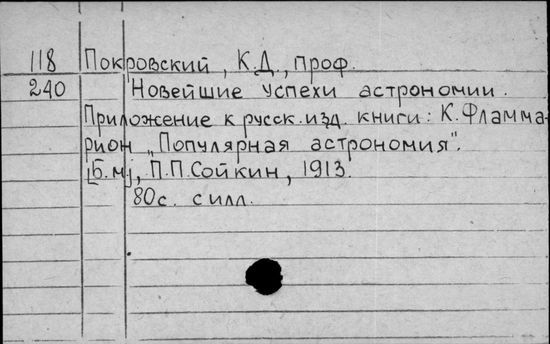 118 Покровский, К.Д., проф.
240 Новейшие успехи астрономии.
Приложение к русск. изд. книги: К. Фламма-
рион „Популярная астрономия".
[Б.м], П.П. Сойкин, 1913.
80с. с илл.